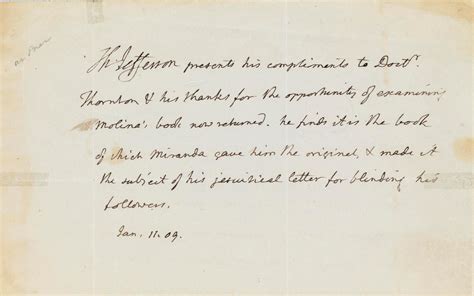 Th Jefferson presents his compliments to Doctr.
Thornton & his thanks for the opportunity of examining
Molina's book now returned. he finds it is the book
of which Miranda gave him the original, & made it
the subject of his jesuitical letter for blinding his
followers.
Jan. 11. 09.